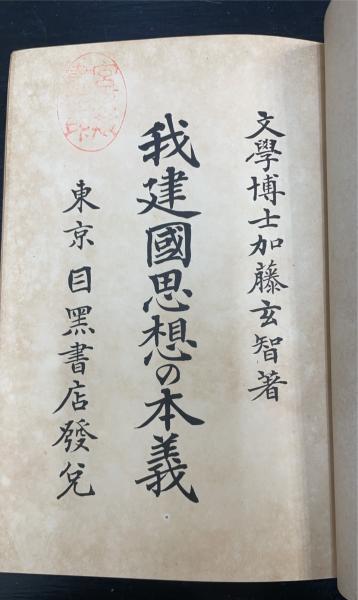 文學博士加藤玄智著
我建國思想の本義
東京 目黑書店發兌